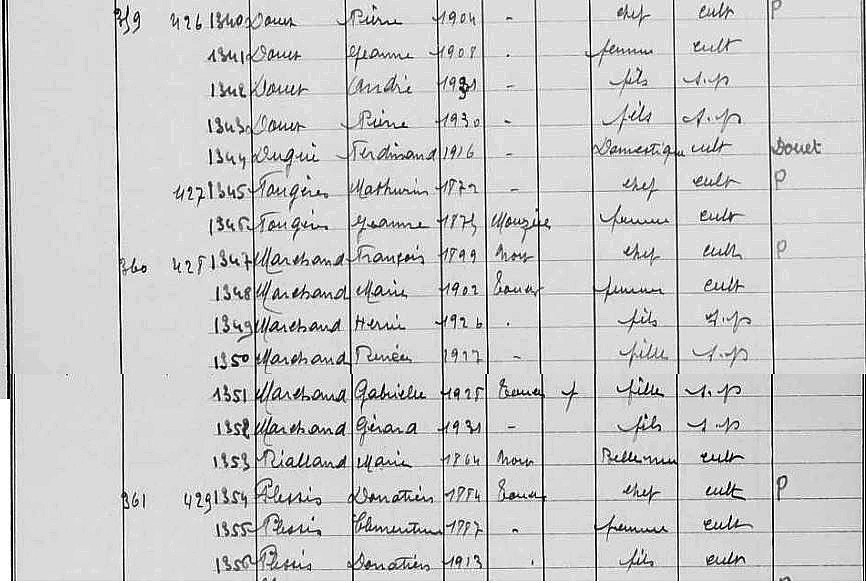 359 426 1340 Douet Pierre 1904 - chef cult P
1341 Douet Jeanne 1908 . femme cult
1342 Douet André 1931 - fils s.p
1343 Douet Pierre 1930 - fils s.p
1344 Dugué Ferdinand 1916 - Domestique cult Douet
427 1345 Fougères Mathurin 1872 - chef cult P
1346 Fougères Jeanne 1875 femme cult
360 428 1347 Marchand François 1899 chef cult P
1348 Marchand Marie 1902 femme cult
1349 Marchand Hervé 1926 . fils s.p
1350 Marchand Renée 1927 - fille s.p
1351 Marchand Gabrielle 1928 f fille s.p
1352 Marchand Gérard 1931 - fils s.p
1353 Rialland Marie 1864 Belle mère cult
361 429 1354 Plessis Donatien 1884 chef cult P
1355 Plessis Clémentine 1887 - femme cult
1356 Plessis Donatien 1913 . fils cult